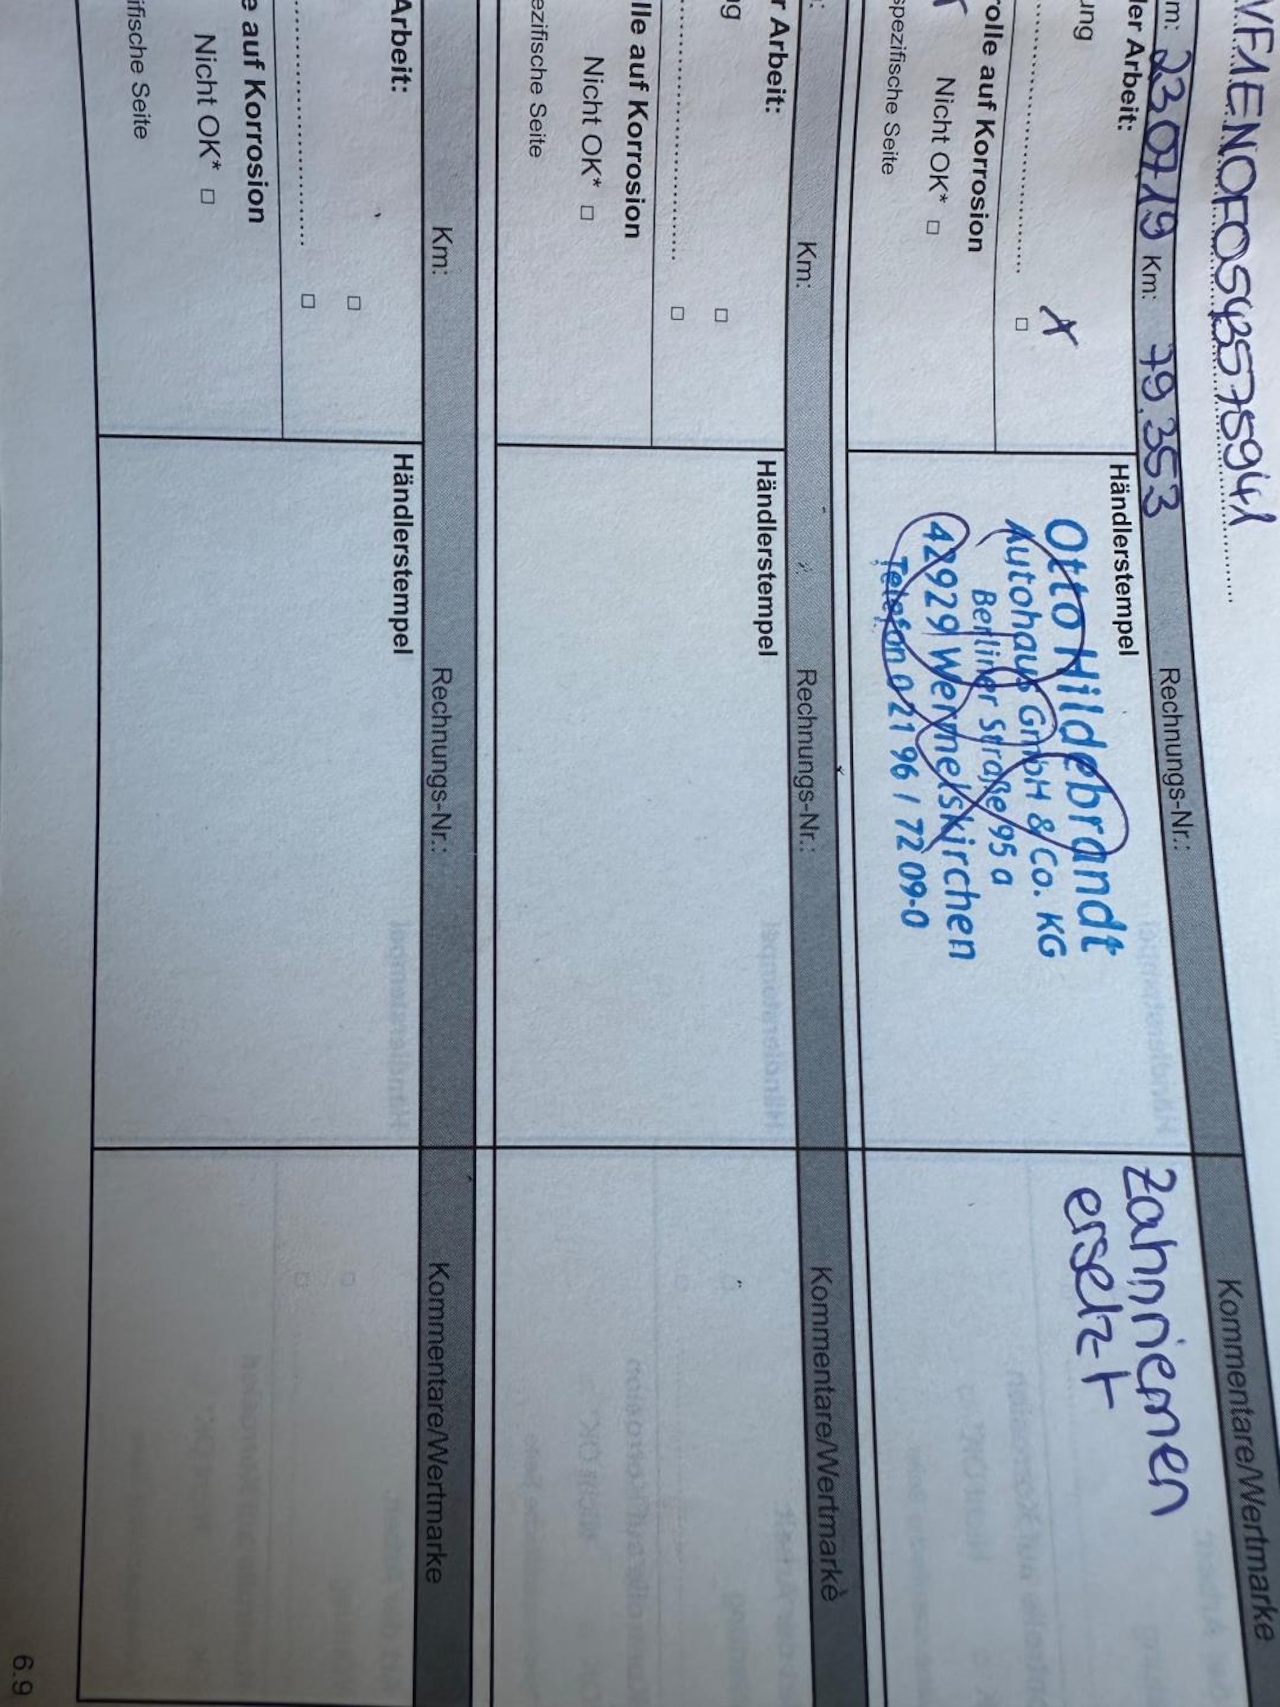 VF1EN0F054B575941
m: 230719 Km: 79.353 Rechnungs-Nr.: Kommentare/Wertmarke
der Arbeit:
ung X
.................... □
olle auf Korrosion
Nicht OK* □
spezifische Seite
Händlerstempel
Otto Hildebrandt
Autohaus GmbH & Co. KG
Berliner Straße 95 a
42929 Wermelskirchen
Telefon 0 21 96 / 72 09-0
Zahnriemen
ersetzt
: Km: Rechnungs-Nr.: Kommentare/Wertmarke
r Arbeit:
ng □
.................... □
lle auf Korrosion
Nicht OK* □
ezifische Seite
Händlerstempel
Km: Rechnungs-Nr.: Kommentare/Wertmarke
Arbeit:
□
.................... □
e auf Korrosion
Nicht OK* □
ifische Seite
Händlerstempel
6.9